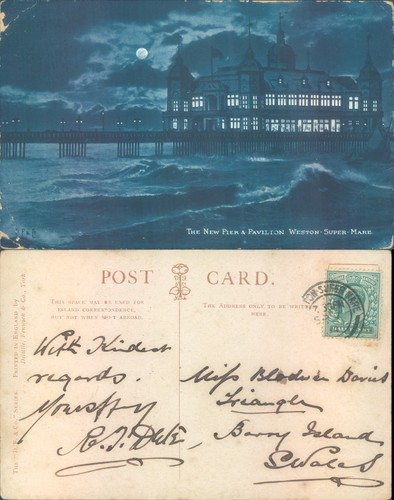 THE NEW PIER & PAVILION WESTON-SUPER-MARE.
POST CARD.
THIS SPACE MAY BE USED FOR
INLAND CORRESPONDENCE,
BUT NOT WHEN SENT ABROAD.
THE ADDRESS ONLY TO BE WRITTEN
HERE.
PRINTED IN ENGLAND BY
With Kindest
regards.
Yours
Miss Blodwen Davis
Triangle
Barry Island
S Wales